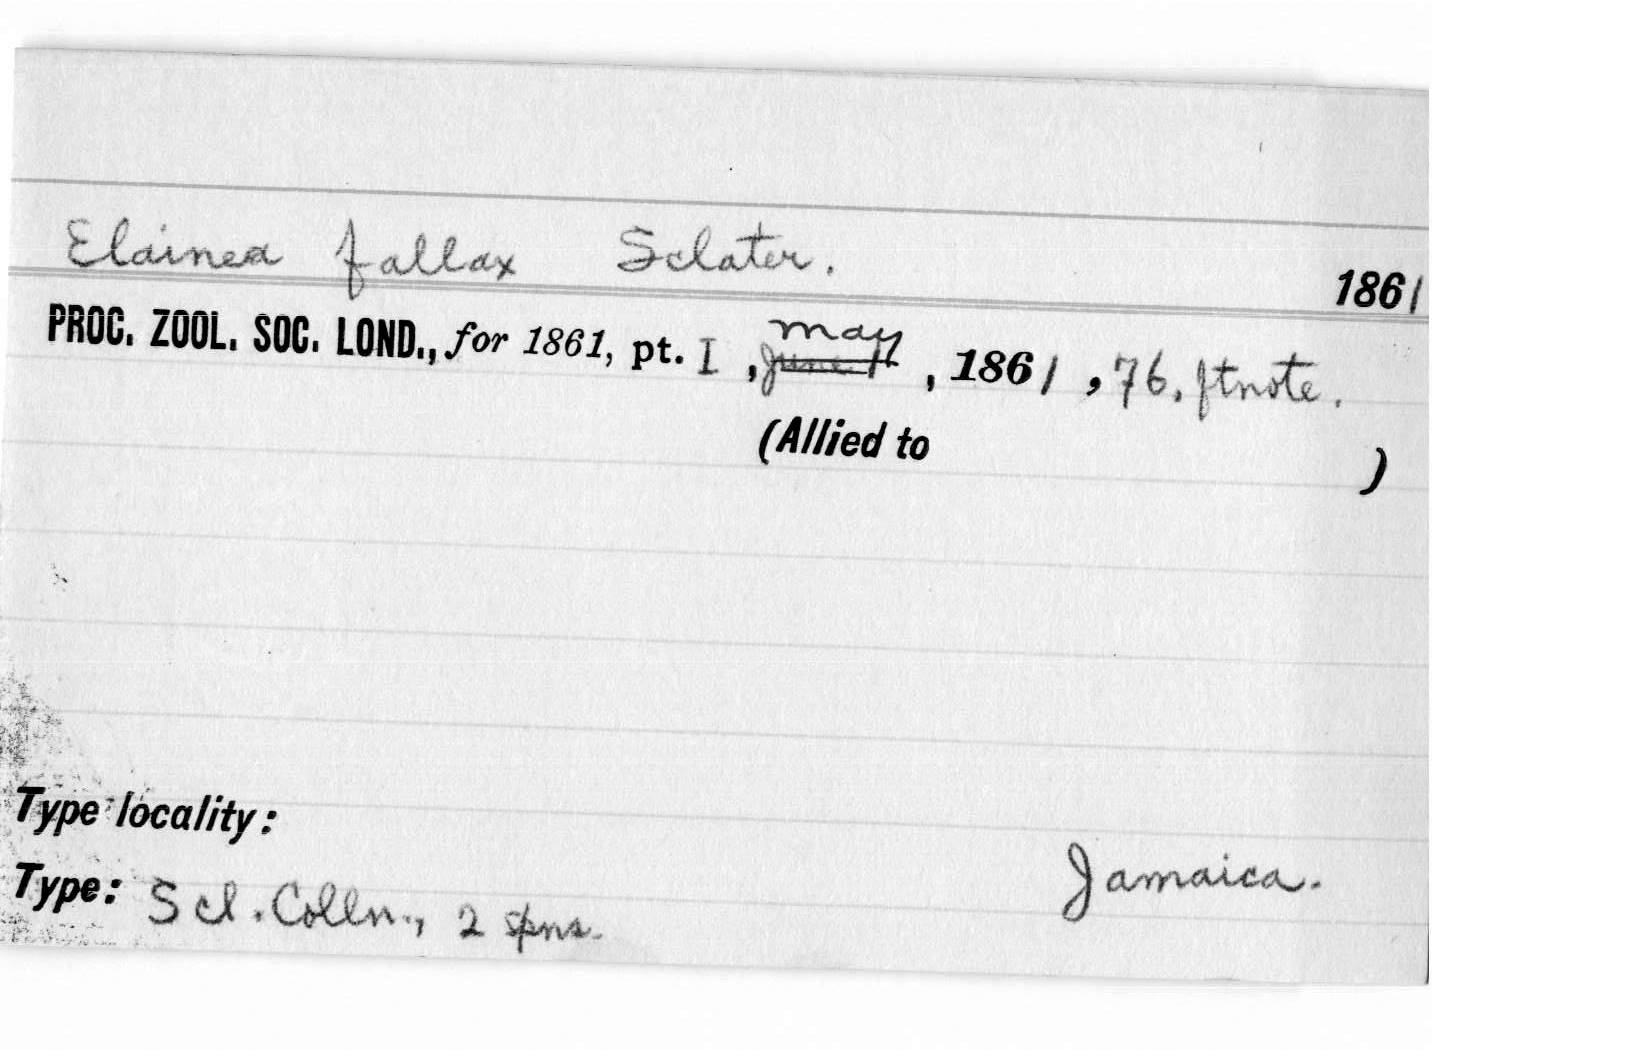 Elainea fallax Sclater.
1861
PROC. ZOOL. SOC. LOND., for 1861, pt. I, June May, 1861, 76, ftnote.
(Allied to )
Type locality:
Jamaica.
Type: Scl. Colln., 2 spns.